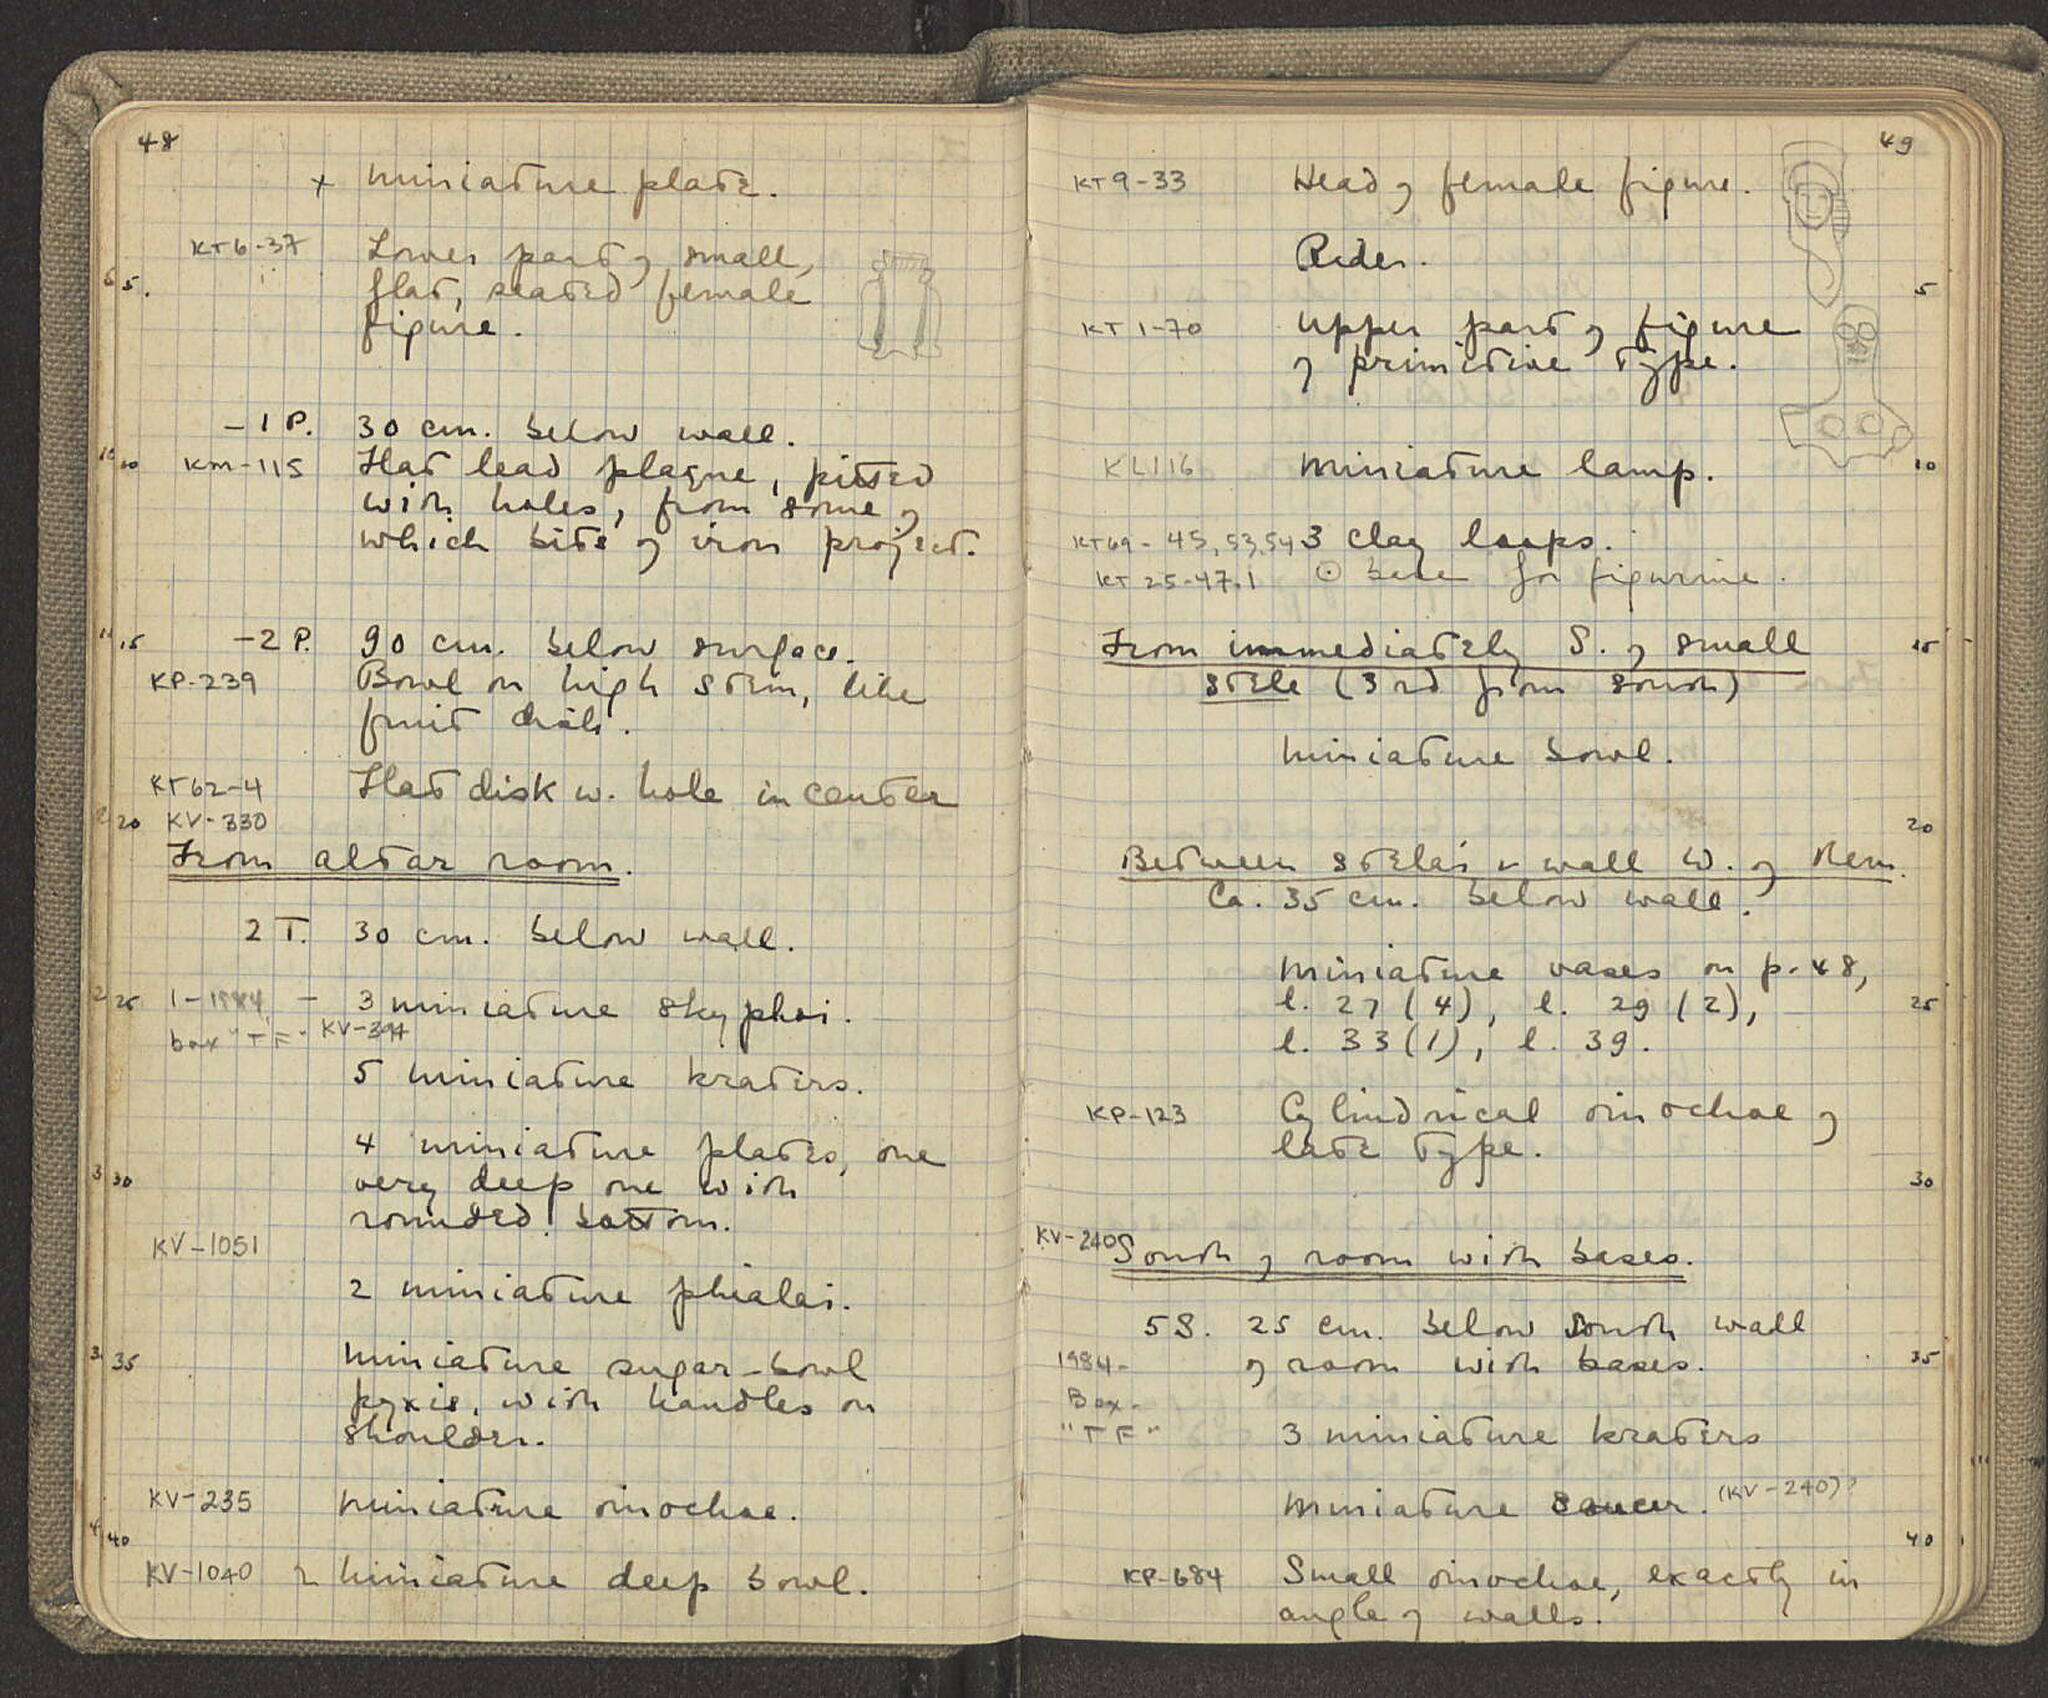 48
x miniature plate.
KT6-37 Lower part of small,
5. flat, seated female
figure.
-1 P. 30 cm. below wall.
10 KM-115 Flat lead plaque, pitted
with holes, from some of
which bits of iron project.
15 -2 P. 90 cm. below surface.
KP-239 Bowl on high stem, like
fruit dish.
KT62-4 Flat disk w. hole in center
20 KV-330
From altar room.
2 T. 30 cm. below wall.
25 1-1984 - 3 miniature skyphoi.
box "TF" KV-394
5 miniature kraters.
4 miniature plates, one
30 very deep one with
rounded bottom.
KV-1051
2 miniature phialai.
35 miniature sugar-bowl
pyxis, with handles on
shoulder.
KV-235 miniature oinochoe.
40
KV-1040 2 miniature deep bowl.
49
KT9-33 Head of female figure.
Rider.
5
KT1-70 Upper part of figure
of primitive type.
KL116 Miniature lamp. 10
KT69-45,53,54 3 clay loops.
KT25-47.1 ⊙ base for figurine.
From immediately S. of small 15
stele (3rd from south)
miniature bowl.
20
Between stelai & wall W. of them.
Ca. 35 cm. below wall.
Miniature vases on p. 48,
l. 27 (4), l. 29 (2), 25
l. 33 (1), l. 39.
KP-123 Cylindrical oinochoe of
late type.
30
KV-240 South of room with bases.
5 S. 25 cm. below South wall
1984- of room with bases. 35
Box-
"TF" 3 miniature kraters
Miniature saucer. (KV-240)?
40
KP-684 Small oinochoe, exactly in
angle of walls.